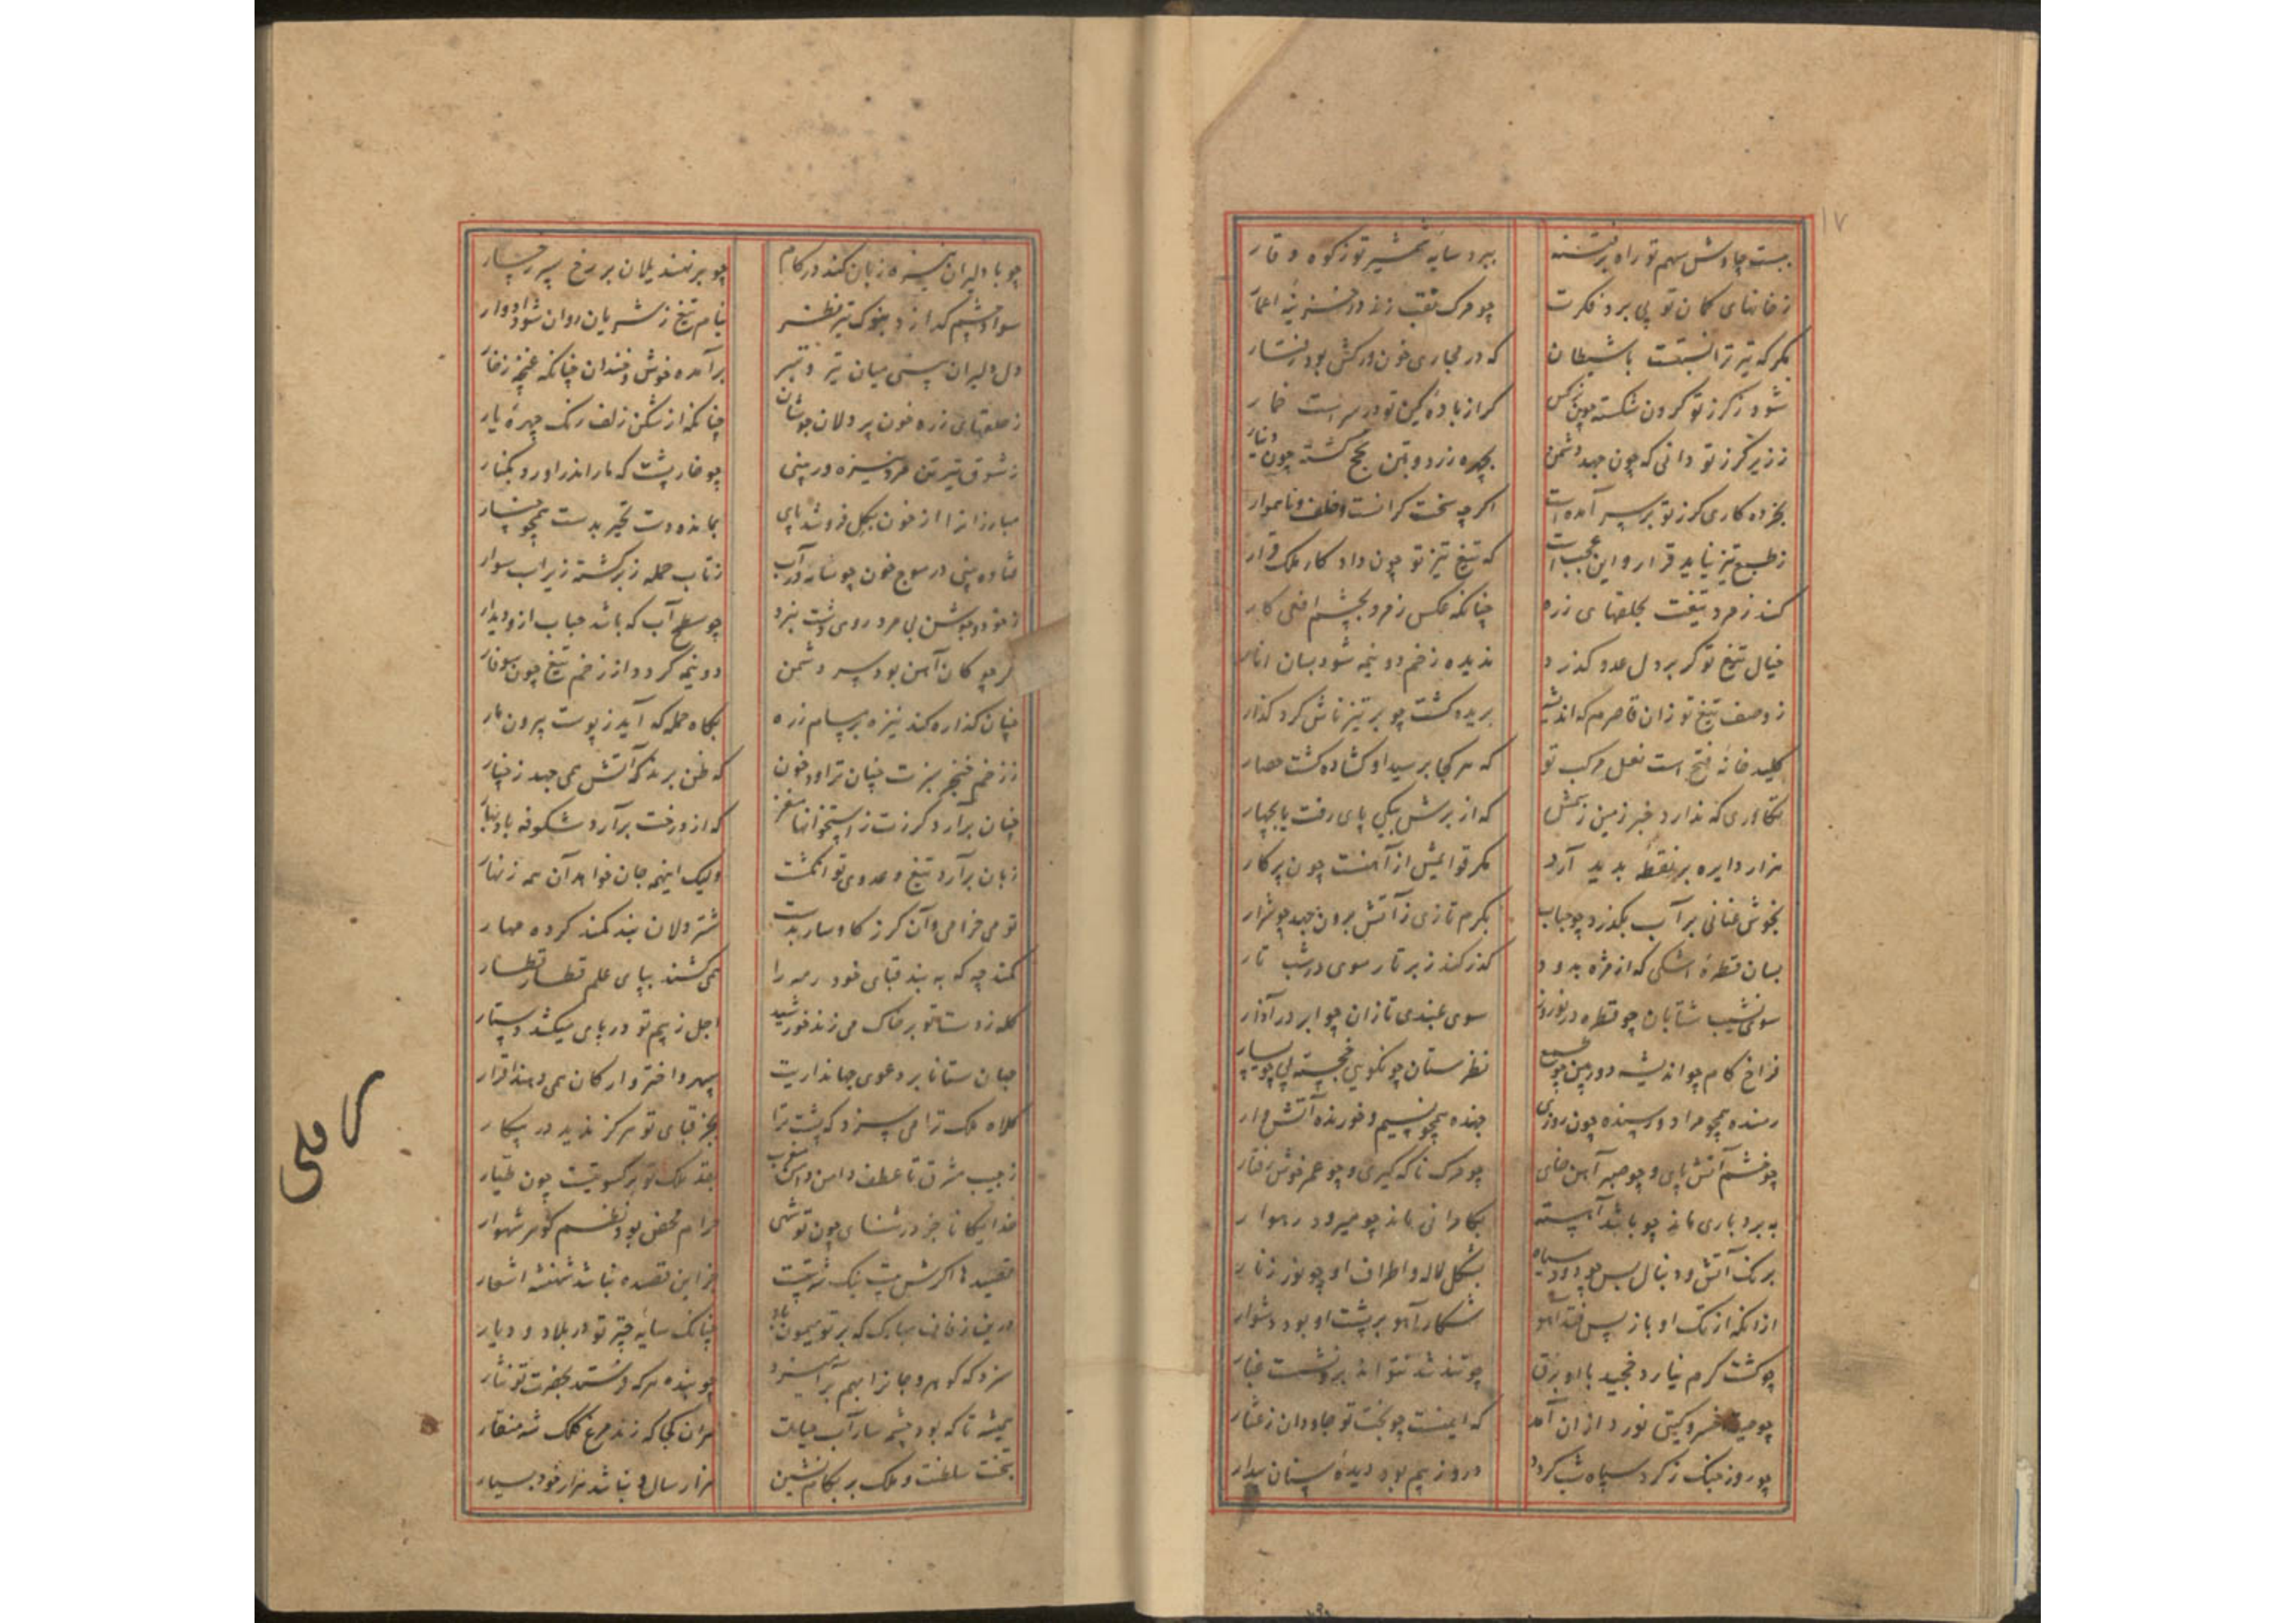 ۱۷
ببست چاوش سهم تو راه بر فتنه ببرد سایه شمشیر تو ز کوه وقار
ز خانهای کمان تو پی برد فکرت چو مرک نقب زند در خزینه اعمار
مکر که تیر ترا نسبتست با شیطان که در مجاری خون درکش بود رفتار
شود ز کرز تو کردون شکسته چون نرکس کر از باده کین تو در سر است خمار
ز زیر کرز تو دانی که چون جهد دشمن بچهره زرد و بتن کج کشته چون دینار
بخرده کاری کرز تو بر سر آمده است اکرچه سخت کرانست و خلف و ناهموار
ز طبع تیز نیاید قرار و این عجب است که تیغ تیز تو چون داد کار ملک قرار
کند زمرد تیغت بحلقهای زره چنانکه عکس زمرد بچشم افعی کار
خیال تیغ تو کر بر دل عدو کذرد ندیده زخم دو نیمه شود بسان انار
ز وصف تیغ تو زان قاصرم که اندیشه بریده کشت چو بر تیزناش کرد کذار
کلید خانه فتح است نعل مرکب تو که هر کجا برسید او کشاده کشت حصار
تکاوری که ندارد خبر زمین ز سمش که از برش بیکی پای رفت یا بچهار
هزار دایره بر نقطه پدید آرد مکر قوایمش از آهنست چون پرکار
بخوش عنانی بر آب بکذرد چو حباب بکرم تازی ز آتش برون جهد چو شرار
بسان قطره اشکی که از مژه بدود کذر کند ز بر تار موی در شب تار
سوی نشیب شتابان چو قطره در نوروز سوی بلندی تازان چو ابر در آذار
فراخ کام چو اندیشه دوربین چو طمع نظرستان چو نکویی خجسته پی چو یسار
رمنده همچو مراد و رسنده چون روزی جهنده همچو نسیم و خورنده آتش وار
چو خشم آتش پای و چو صبر آهن خای چو مرک ناکه کیر و چو عمر خوش رفتار
به بردباری ماند چو باشد آهسته بکامرانی ماند چو میرود رهوار
برنک آتش و دنبال بس چو دود سیاه بشکل لاله و اطراف او چو نوز زنار
از آنکه از تک او باز پس فتد آهو شکار آهو بر پشت او بود دشوار
چو کشت کرم نیارد خجید با او برق چو تند شد نتواند برو نشست غبار
چو صیت خسرو کیتی نورد از آن آمد که ایمنست چو بخت تو جاودان ز عثار
چو روز جنک ز کرد سپاه شب کردد درو ز بیم بود دیده سنان بیدار
چو با دلیران نیزه زبان کند در کام چو بر نهند یلان بر رخ سپر رخسار
سواد چشم کدازد بنوک تیر نظر نیام تیغ ز شریان روان شود ادوار
دل دلیران بینی میان تیر و تبر برآمده خوش و خندان چنانکه غنچه ز خار
ز حلقهای زره خون پردلان جوشان چنانکه از شکن زلف رنک چهره یار
ز شوق تیر تن مرد نیزه ور بینی چو خارپشت که مار اندر آورد بکنار
مبارزان را از خون بکل فروشد پای بمانده دست تحیر بدست همچو چنار
فتاده بینی در موج خون چو سایه در آب ز تاب حمله زبر کشته زیر اسب سوار
ز خود و جوشن بی مرد روی دشت نبرد چو سطح آب که باشد حباب ازو دیدار
اکرچو کان آهن بود سر دشمن دو نیمه کردد از زخم تیغ چون سوفار
چنان کذاره کند نیزه بر مسام زره بکاه حمله که آید ز پوست بیرون مار
ز زخم خنجر سبزت چنان تراود خون که ظن برند که آتش همی جهد ز چنار
چنان برآرد کرزت ز استخوانها مغز که از درخت برآرد شکوفه باد بهار
زبان برآرد تیغ و عدوی تو انکشت ولیک اینهمه جان خواهد آن همه زنهار
تو می خرامی و آن کرز کاوسار بدست شتر دلان بند کمند کرده مهار
کمند چه که به بند قبای خود رمه را همی کشند بپای علم قطار قطار
کله ز دستاتو بر خاک می زند خورشید اجل ز بیم تو در پای میکشد دستار
جهان ستانا بر دعوی جهانداریت سپهر و اختر و ارکان همی دهند اقرار
کلاه ملک ترا می سزد که پشت ترا بجز قبای تو هرکز ندید در پیکار
ز جیب مشرق تا عطف دامن مغرب بقد ملک تو بر کسوتیست چون طیار
خدایکانا جز در ثنای چون تو شهی حرام محض بود نظم کوهر شهوار
قصیدها اکرش بیت نیک شه بیتست جز این قصیده نباشد شهنشه اشعار
درین زفاف مبارک که بر تو میمون باد چنانک سایه چتر تو در بلاد و دیار
سزد که کوهر و جانرا بهم برآمیزد چو بنده هرکه فرستد بحضرت تو نثار
همیشه تا که بود چشمه سار آب حیات هر آن کجا که زند مرغ کلک شه منقار
بتخت سلطنت و ملک بر بکام نشین هزار سال و نباشد هزار خود بسیار